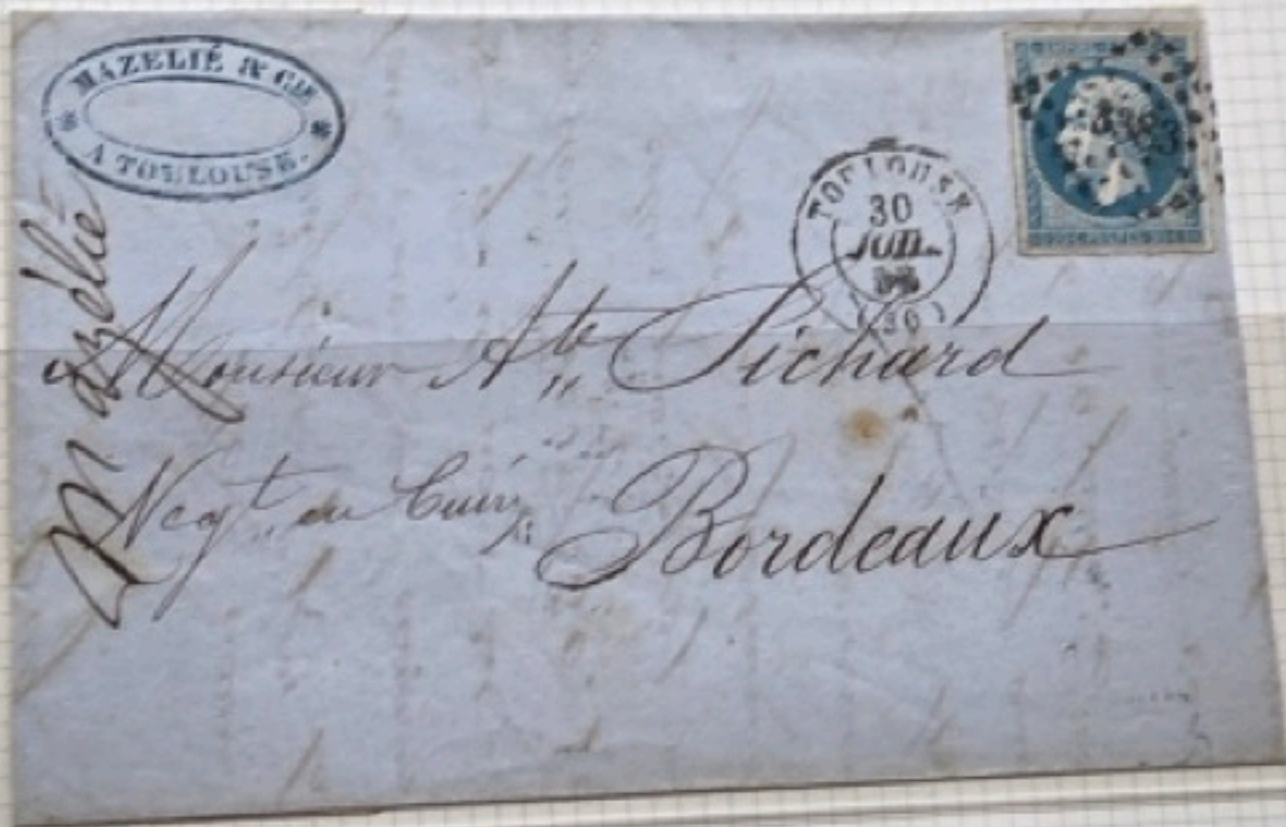 MAZELIÉ & Cie
A TOULOUSE.
TOULOUSE
30
JUIL.
(30)
3383
Mazélié
Monsieur Ate Pichard
Negt en Cuirs
Bordeaux